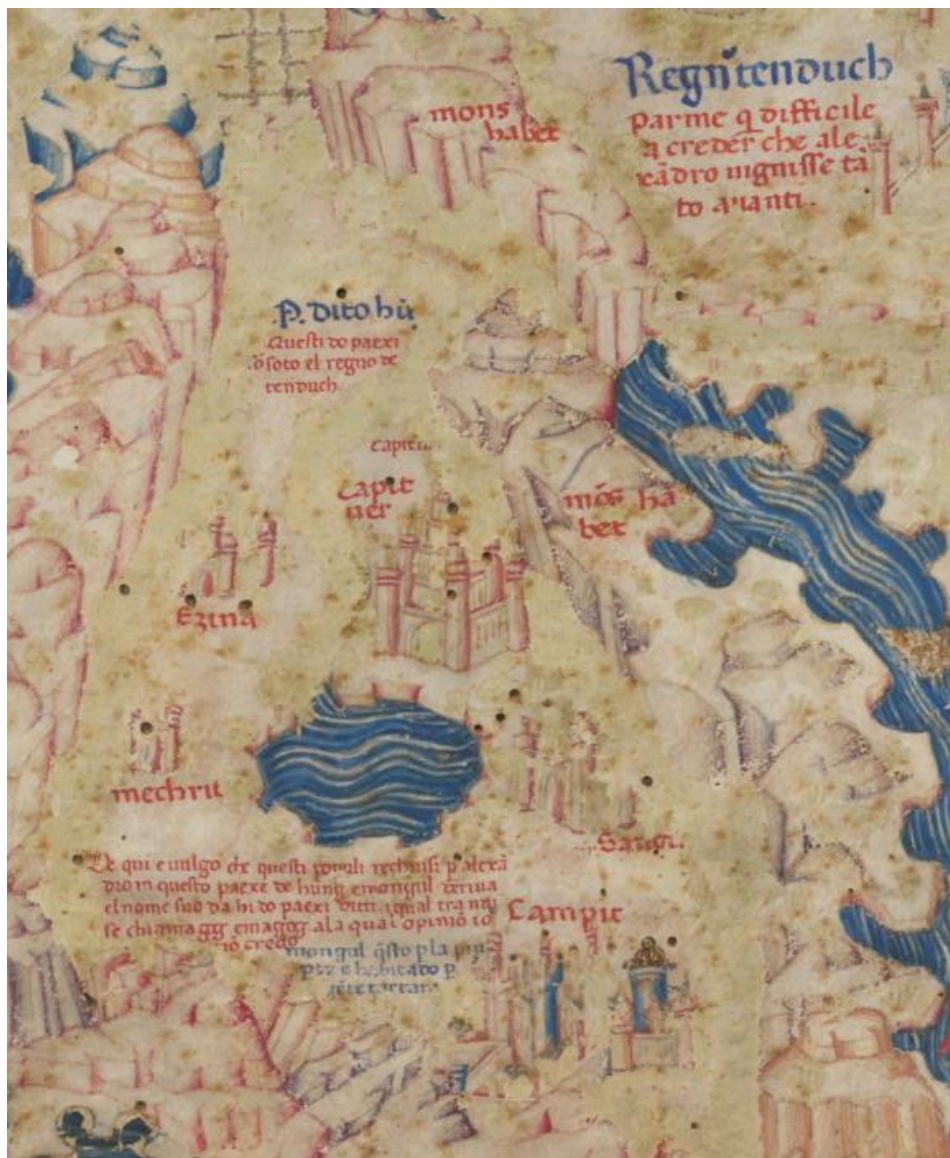 Regnũ tenduch
Par me q̄ difficile
a creder che ale
xãdro uignisse tã
to auanti.
mons
habet
P. dito hũ
Questi do paexi
soto el regno de
tenduch
capit
capit
uer
mõs ha
bet
Ezina
mechrit
Sangi
e qui e uulgo che questi populi rechiusi p alexã
dro in questo paexe de hung e mongul deriua
el nome suo da hi do paexi diti, i qual tra nui
se chiama gog e magog a la qual opiniõ io
nõ credo
Campit
mongul q̃sto p la
pte e habitado p
tartara